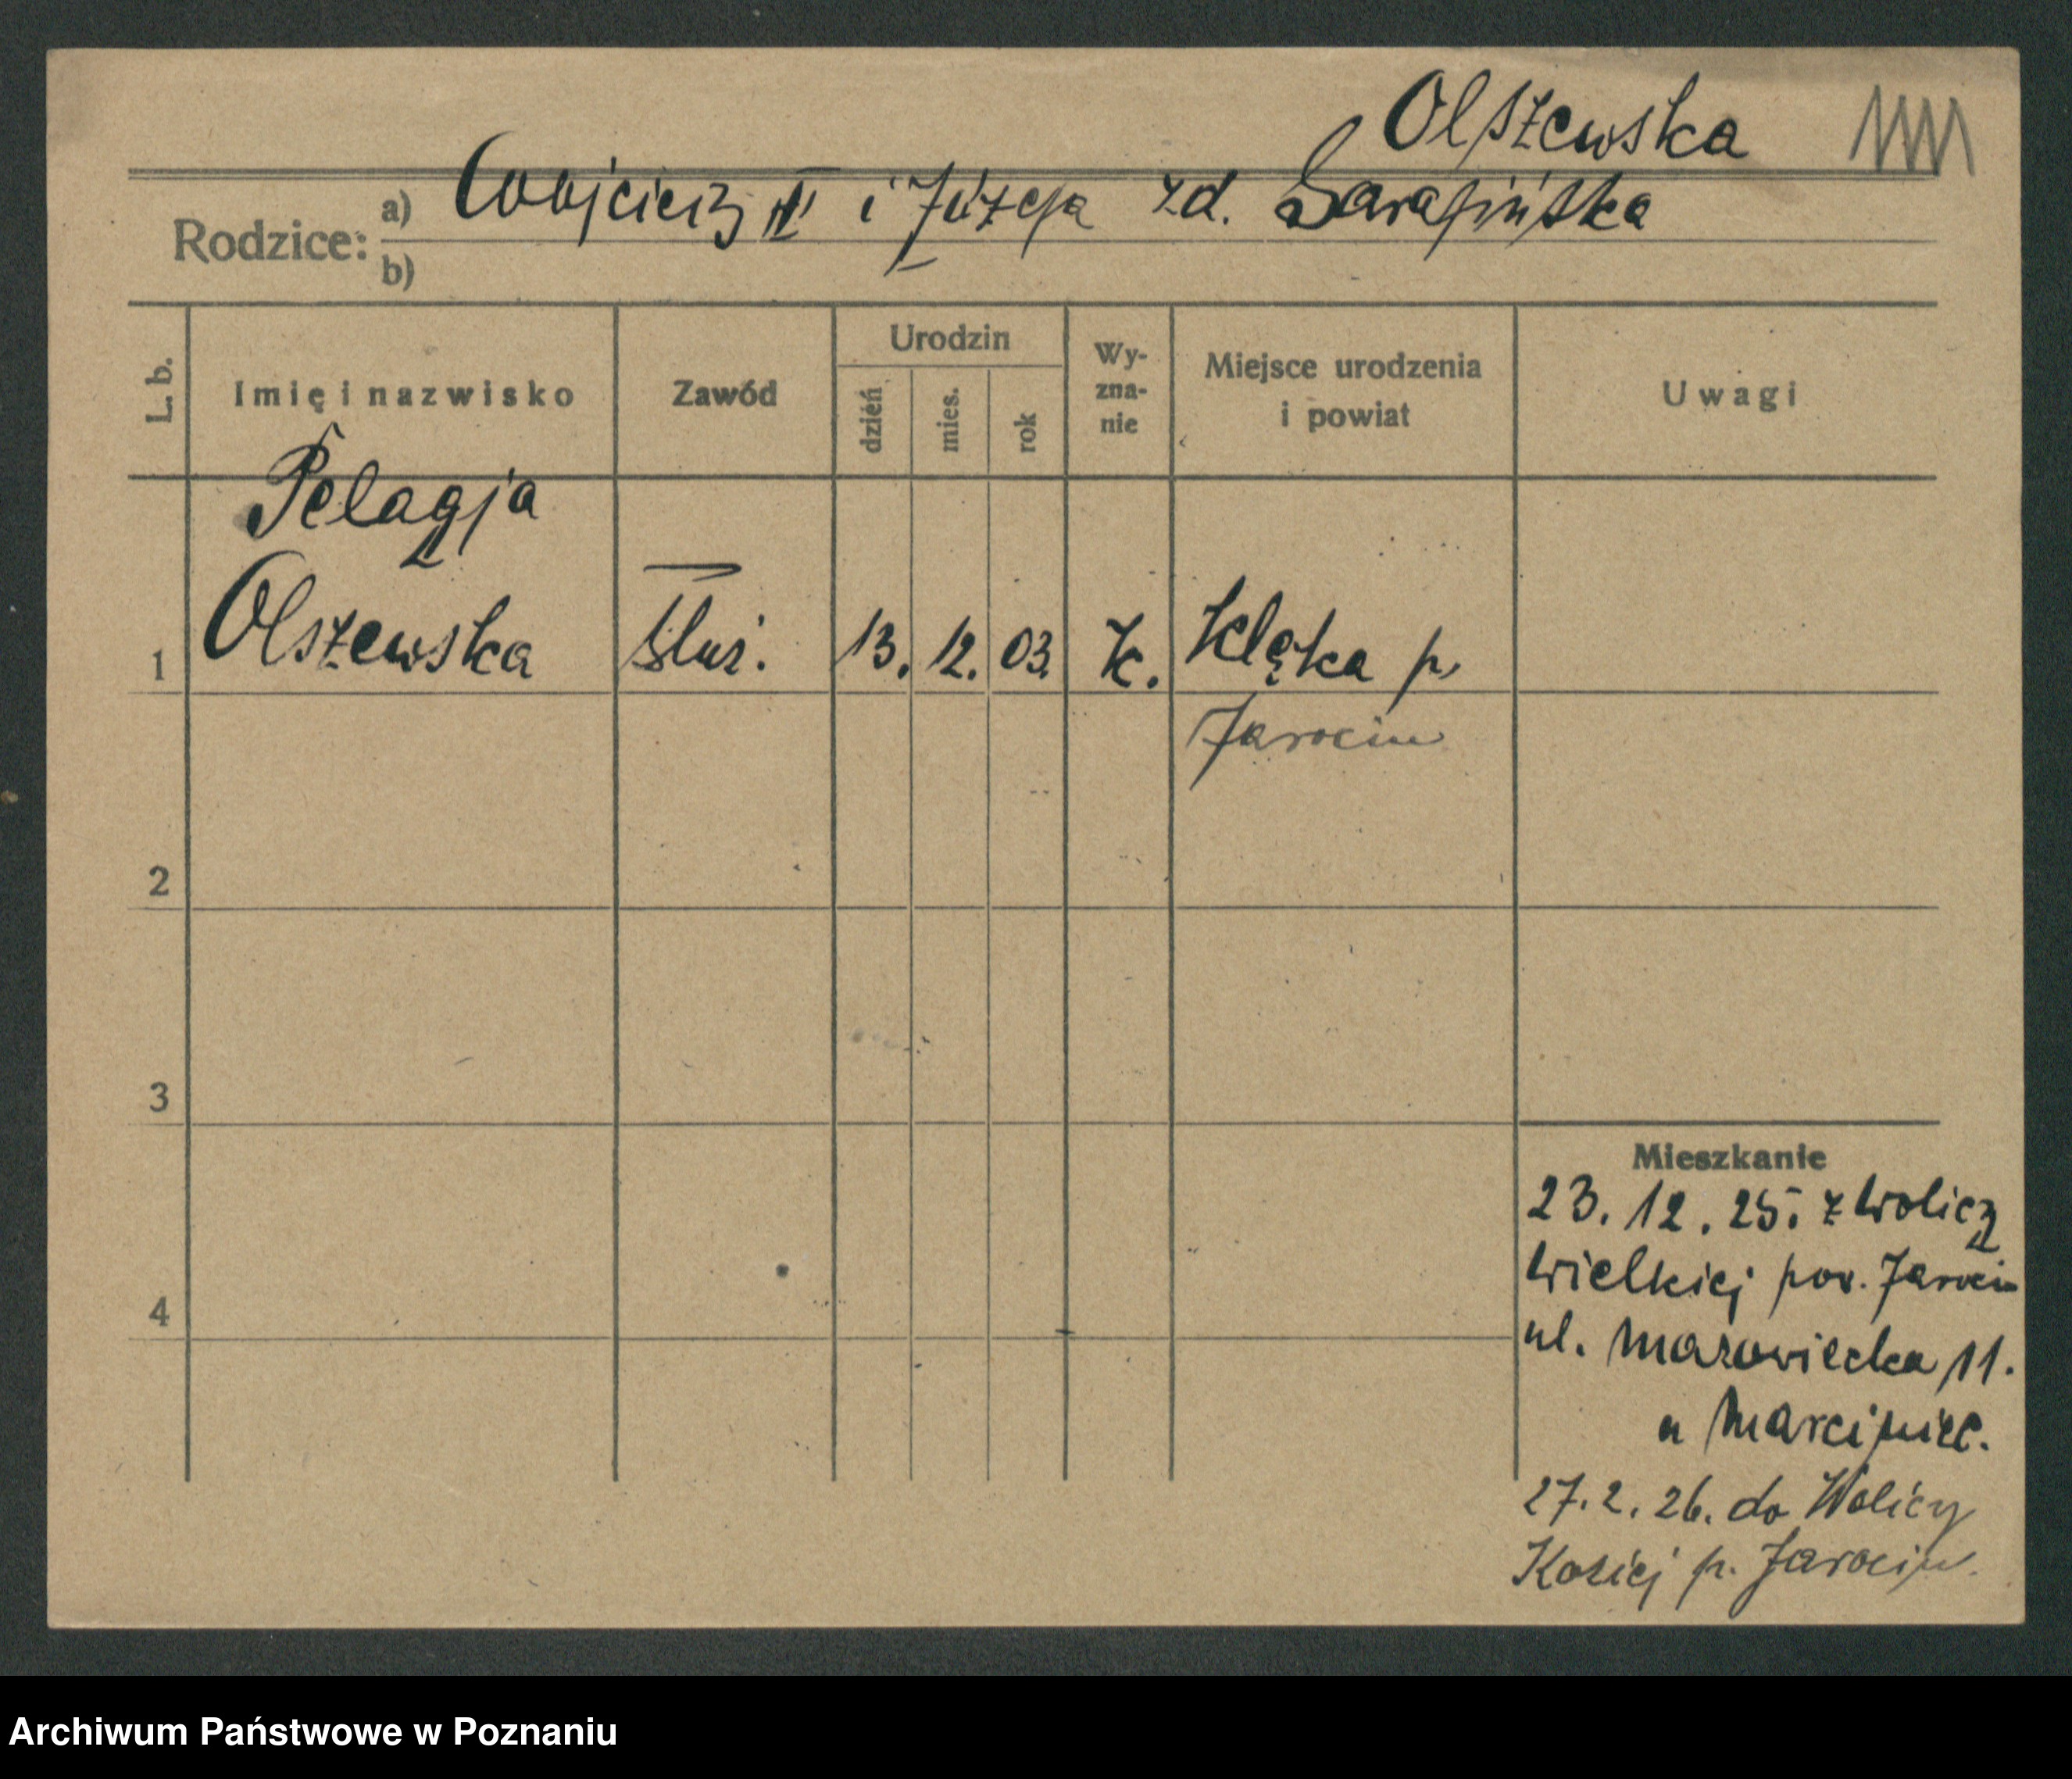 Olszewska
Rodzice: a) Wojciech i Józefa zd. Sarafińska
b)
L. b.
Imię i nazwisko
Zawód
Urodzin
dzień
mies.
rok
Wy-
zna-
nie
Miejsce urodzenia
i powiat
Uwagi
Pelagja
1 Olszewska służ. 13. 12. 03. k. Klęka p.
Jarocin
2
3
4
Mieszkanie
23. 12. 25. z Wolicy
Wielkiej pow. Jarocin
ul. Mazowiecka 11.
u Marciniec.
27. 2. 26. do Wolicy
Koziej p. Jarocin.
Archiwum Państwowe w Poznaniu